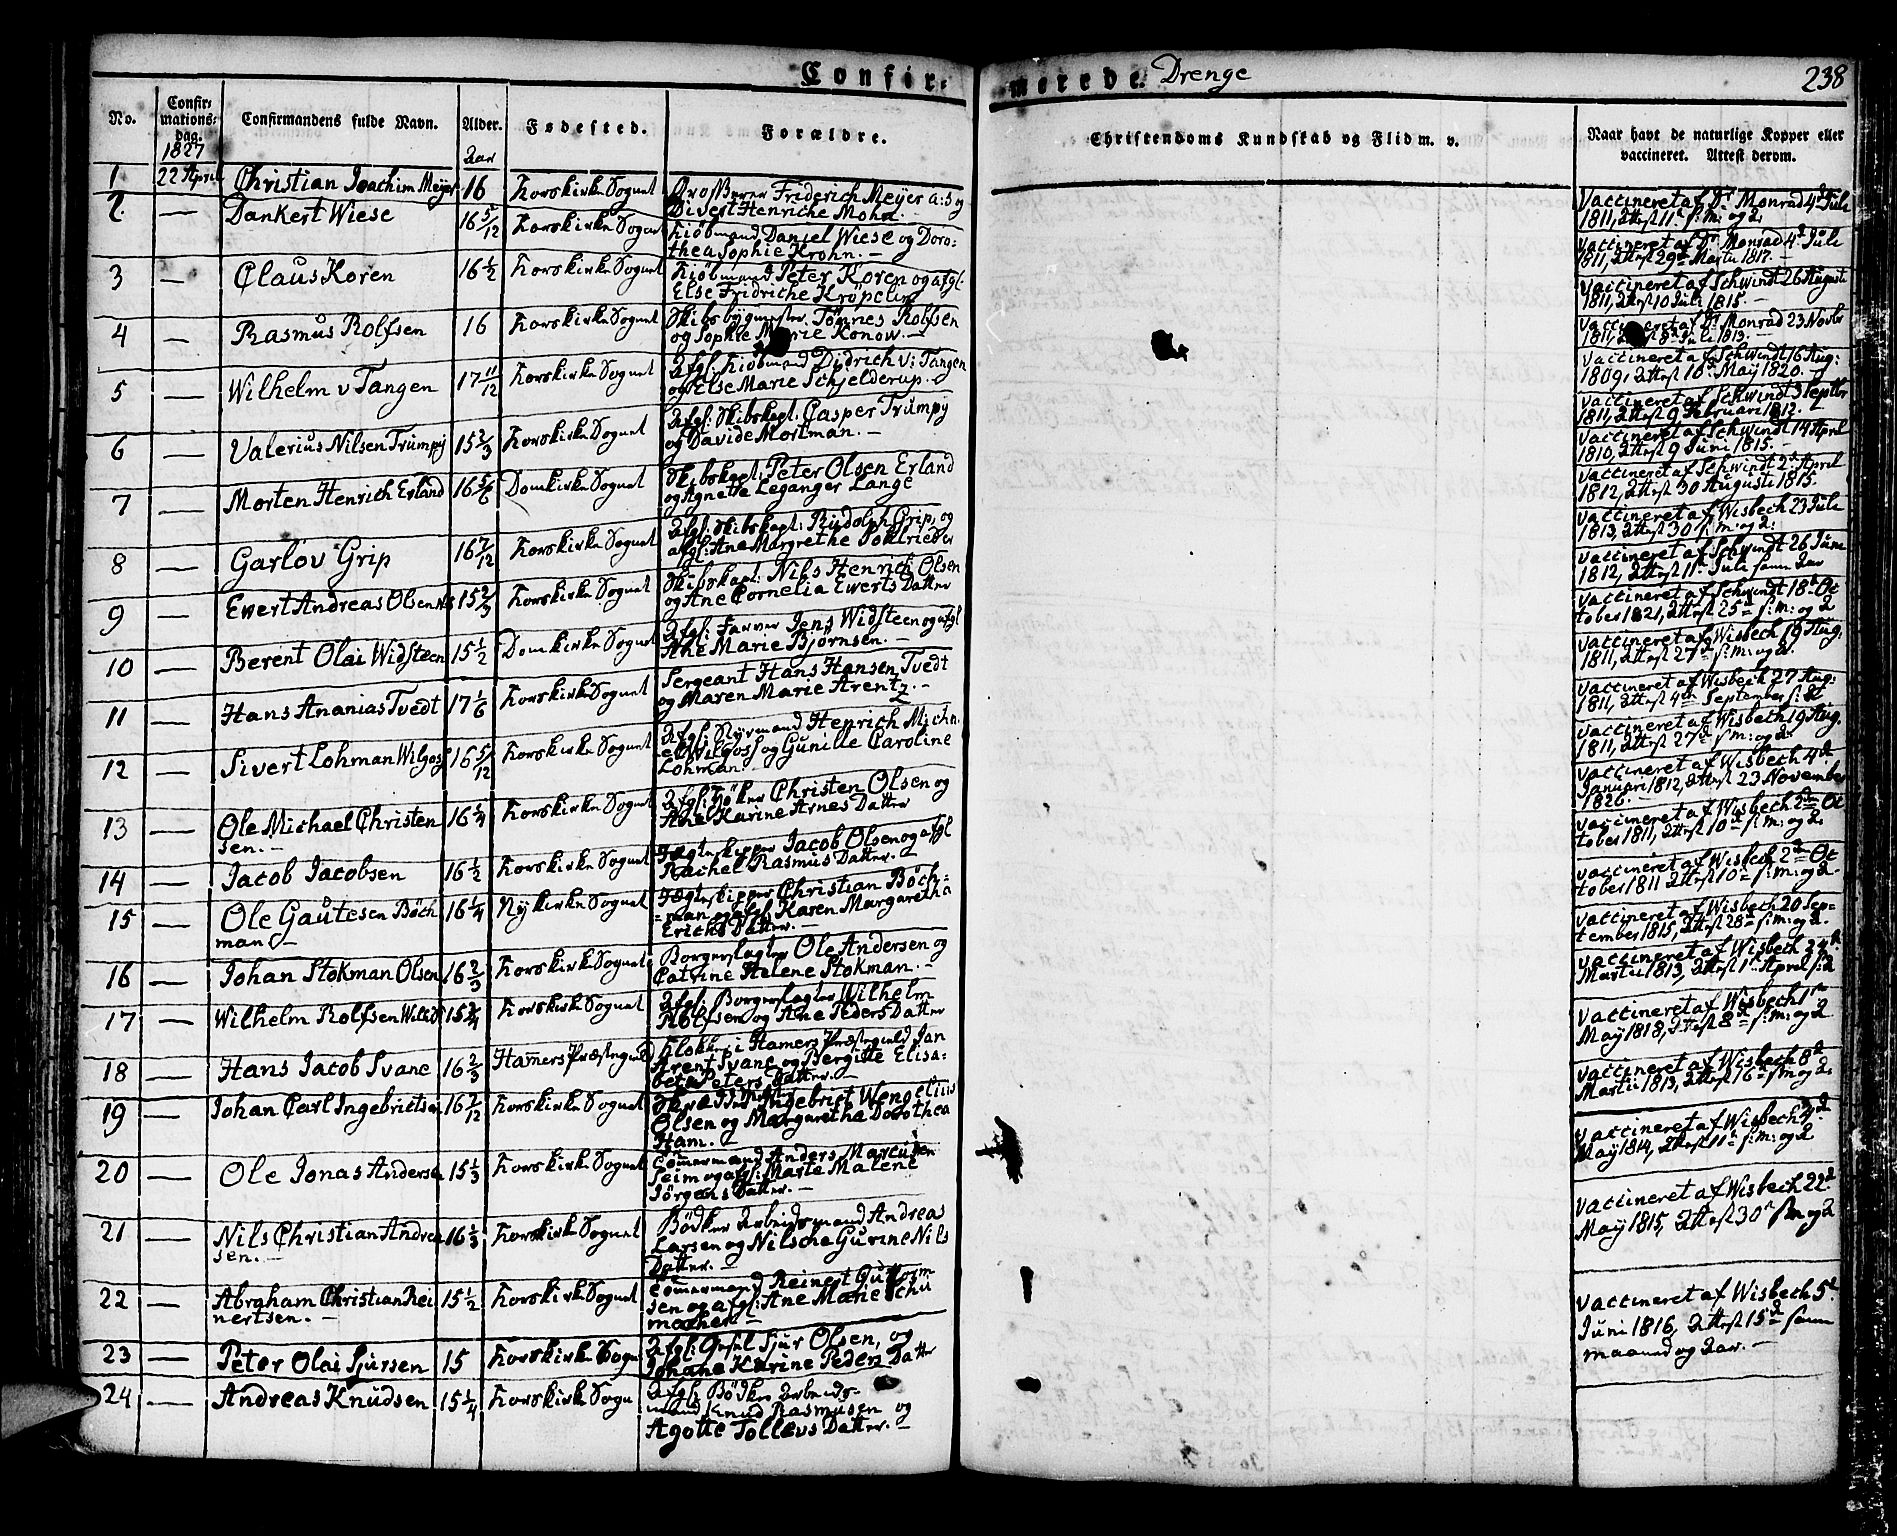 Confir-
merede Drenge
238
No.
Confir-
mations-
dag.
Confirmandens fulde Navn.
Alder.
Fødested.
Forældre.
Christendoms Kundskab og Flid m. v.
Naar havt de naturlige Kopper eller
vaccineret. Attest derom.
1827
Aar
1 22 April Christian Joachim Meyer 16 Korskirke Sognet
Friderich Meyer
Divert Henriche Mohr. —
Vaccineret af Dr Monrad 4d Juli
1811, Attest 11te s: M: og A.
2 — Dankert Wiese 16 5/12 Korskirke Sognet Kiøbmand Daniel Wiese og Doro-
thea Sophie Krohn. —
Vaccineret af Dr Monrad 4d Juli
1811, Attest 29d Martii 1817. —
3 — Claus Koren 16 1/2 Korskirke Sognet Kiøbmand Peter Koren og afgl.
Else Fridriche Kröpelin
Vaccineret af Schwindt 26 Augusti
1811, Attest 10 Juli 1815. —
4 — Rasmus Rolfsen 16 Korskirke Sognet Skibsbygmester Tønnes Rolfsen
og Sophie Marie Konow. —
Vaccineret af Dr Monrad 23 Novbr
1811, Attest 8d Juli 1813.
5 — Wilhelm v Tangen 17 11/12 Korskirke Sognet Afgl: Kiøbmand Didrich v: Tangen
og Else Marie Schjelderup. —
Vaccineret af Schwindt 16 Aug:
1809, Attest 10d May 1820. —
6 — Valerius Nilsen Trumpy 15 2/3 Korskirke Sognet Afgl: Skibskapt. Casper Trumpy
og Davide Mortman. —
Vaccineret af Schwindt 3 Septbr
1811, Attest 9 Februari 1812. —
7 — Morten Henrich Erland 16 5/6 Domkirke Sognet Skibskapt: Peter Olsen Erland
og Agnette Leganger Lange
Vaccineret af Schwindt 14 April
1810, Attest 9 Juni 1815. —
8 — Garlov Grip 16 7/12 Korskirke Sognet Afgl: Skibskapt: Rudolph Grip, og
afgl: Ane Margrethe
Vaccineret af Schwindt 2d April
1812, Attest 30 Augusti 1815.
9 — Ewert Andreas Olsen 15 2/3 Korskirke Sognet Skibskapt: Nils Henrich Olsen
og Ane Cornelia Ewerts Datter
Vaccineret af Wisbech 23 Juli
1813, Attest 30 s: m: og A:
10 — Berent Olai Widsteen 15 1/2 Domkirke Sognet Afgl: Jens Widsteen og afgl
Ane Marie Bjørnsen. —
Vaccineret af Schwindt 26 Juni
1812, Attest 11te Juli samme Aar
11 — Hans Ananias Tvedt 17 1/6 Korskirke Sognet Sergeant Hans Hansen Tvedt
og Maren Marie Arentz. —
Vaccineret af Schwindt 18d Oc
tober 1821, Attest 25d s: m: og A
12 — Sivert Lohman Wilgoss 16 5/12 Korskirke Sognet Afgl: Styrmand Henrich Micha
el Wilgoss og Gunille Caroline
Lohman. —
Vaccineret af Wisbech 19 Aug.
1811, Attest 27d s: m: og A.
13 — Ole Michael Christen
sen. — 16 1/4 Korskirke Sognet Afgl: Høker Christen Olsen og
Ane Karine Arnes Datter
Vaccineret af Wisbech 27 Aug:
1811, Attest 4de September s: A
14 — Jacob Jacobsen 16 1/2 Korskirke Sognet Jægteskipper Jacob Olsen og afgl
Rachel Rasmus Datter. —
Vaccineret af Wisbech 19 Aug.
1811, Attest 27d s: m: og A:
15 — Ole Gautesen Böch
man — 16 1/4 Nykirke Sognet Jægteskipper Christian Böch-
man og afgl Karen Margaretha
Erichs Datter. —
Vaccineret af Wisbech 4d
Januari 1812, Attest 23 November
1826. —
16 — Johan Stokman Olsen 16 2/3 Korskirke Sognet Borgerslagter Ole Andersen og
Catrine Helene Stokman. —
Vaccineret af Wisbech 2d Oc
tober 1811, Attest 10d s: m: og A.
17 — Wilhelm Rolfsen 15 3/4 Korskirke Sognet Afgl: Borgerslagter Wilhelm
Rolfsen og Ane Peders Datter
Vaccineret af Wisbech 2d Oc
tober 1811 Attest 10d s: m: og A.
18 — Hans Jacob Svane 16 2/3 Hamers Præstegield Klokker i Hamers Præstegield Jan
Arent Svane og Bergitte Elisa-
beth Peters Datter. —
Vaccineret af Wisbech 20 Sep-
tember 1815, Attest 28d s: m: og A.
19 — Johan Carl Ingebrictsen 16 7/12 Korskirke Sognet Ingebrict Wengelius
Olsen og Margaretha Dorothea
Ham. —
Vaccineret af Wisbech 24d
Martii 1813, Attest 1te April s: A
20 — Ole Jonas Andersen 15 1/3 Korskirke Sognet Tömmermand Anders Marcusen
Seim og afgl: Marte Malene
Jörgens Datter. —
Vaccineret af Wisbech 1te
May 1818, Attest 8d s: m: og A
21 — Nils Christian Andrea
sen. — 16 1/3 Korskirke Sognet Bödker Arbeidsmand Andreas
Larsen og Nilsche Gurine Nils
Datter. —
Vaccineret af Wisbech 8d
Martii 1813, Attest 16d s: m: og A
22 — Abraham Christian Rei
nertsen. — 15 1/2 Korskirke Sognet Tömmermand Reinert Guttorm
sen og afgl: Ane Marie Schu
macher. —
Vaccineret af Wisbech 4d
May 1814, Attest 11te s: m: og A
23 — Peter Olai Sjursen 15 Korskirke Sogn Afgl: Sjur Olsen, og
Johane Karine Peders Datter
Vaccineret af Wisbech 22d
May 1815, Attest 30te s: m og A
24 — Andreas Knudsen 15 1/4 Korskirke Sogn Afgl: Bödker Arbeids-
mand Knud Rasmusen og
Agotte Tollevs Datter. —
Vaccineret af Wisbech 5d
Juni 1816, Attest 15d samme
maaned og Aar. —